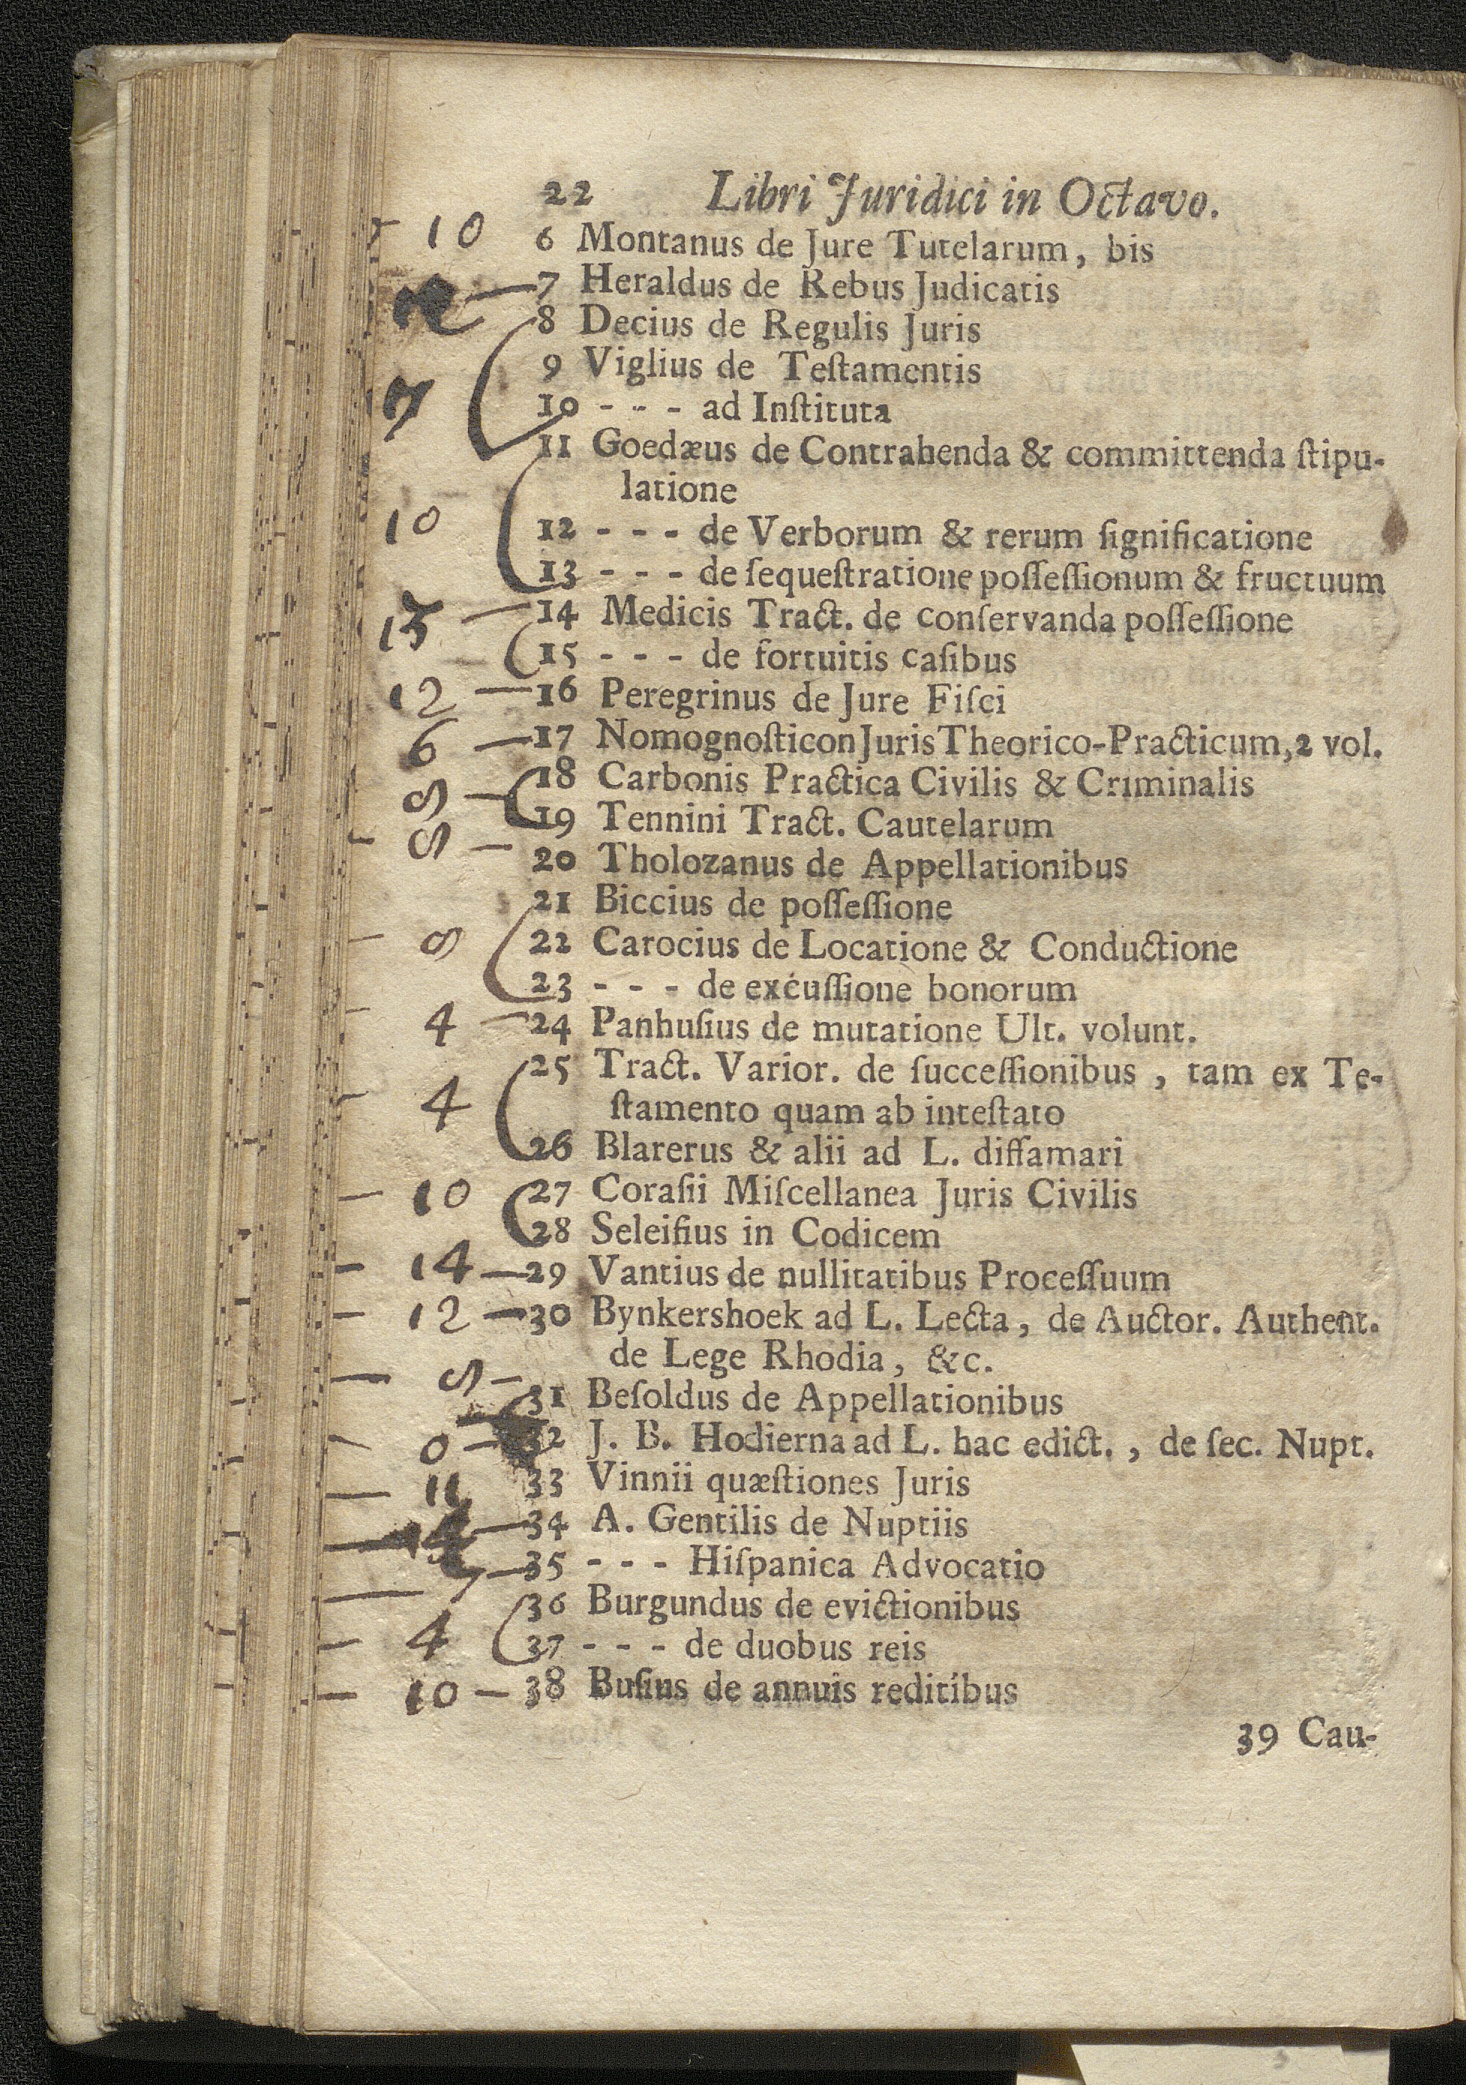 22 Libri Juridici in Octavo.
10 6 Montanus de Jure Tutelarum, bis
7 Heraldus de Rebus Judicatis
8 Decius de Regulis Juris
9 Viglius de Teſtamentis
7 10 - - - ad Inſtituta
11 Goedæus de Contrahenda & committenda ſtipu-
latione
10 12 - - - de Verborum & rerum ſignificatione
13 - - - de ſequeſtratione poſſeſſionum & fructuum
14 Medicis Tract. de conſervanda poſſeſſione
15 - - - de fortuitis caſibus
12 — 16 Peregrinus de Jure Fiſci
6 — 17 Nomognoſticon Juris Theorico-Practicum, 2 vol.
8 — 18 Carbonis Practica Civilis & Criminalis
19 Tennini Tract. Cautelarum
8 — 20 Tholozanus de Appellationibus
21 Biccius de poſſeſſione
8 22 Carocius de Locatione & Conductione
23 - - - de excuſſione bonorum
4 — 24 Panhuſius de mutatione Ult. volunt.
25 Tract. Varior. de ſucceſſionibus, tam ex Te-
4 ſtamento quam ab inteſtato
26 Blarerus & alii ad L. diffamari
10 27 Coraſii Miſcellanea Juris Civilis
28 Seleifius in Codicem
14 — 29 Vantius de nullitatibus Proceſſuum
12 — 30 Bynkershoek ad L. Lecta, de Auctor. Authent.
de Lege Rhodia, &c.
8 — 31 Beſoldus de Appellationibus
0 — 32 J. B. Hodierna ad L. hac edict., de ſec. Nupt.
11 33 Vinnii quæſtiones Juris
34 A. Gentilis de Nuptiis
7 — 35 - - - Hiſpanica Advocatio
36 Burgundus de evictionibus
4 37 - - - de duobus reis
10 — 38 Buſius de annuis reditibus
39 Cau-